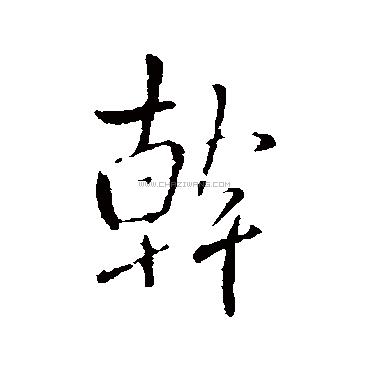 幹
WWW.CHAZIWANG.COM